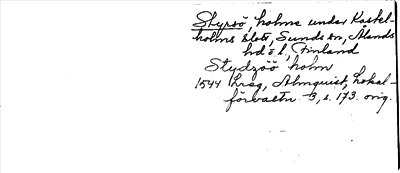 Styrsö, holme under Kastel-
holms slott, Sunds sn, Ålands
hd o l, Finland
Stydzöö holm
1544 hrsg, Almquist, Lokal-
förvaltn. 3, s. 173. orig.